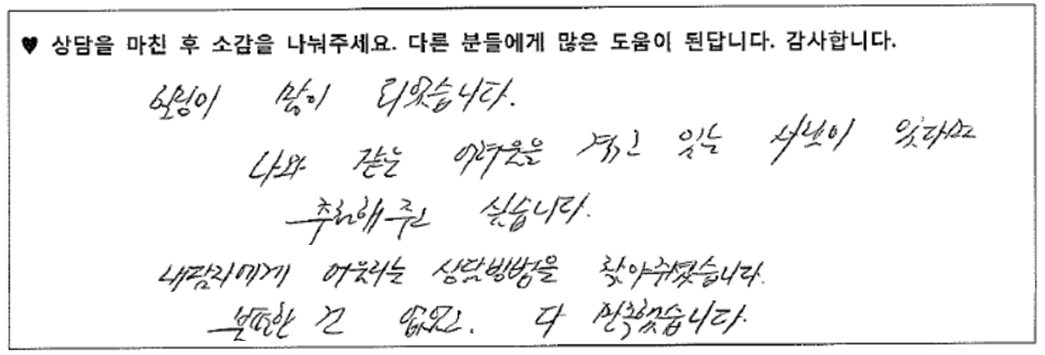 ♥ 상담을 마친 후 소감을 나눠주세요. 다른 분들에게 많은 도움이 된답니다. 감사합니다.
힐링이 많이 되었습니다.
나와 같은 어려움을 겪고 있는 사람이 있다면
추천해주고 싶습니다.
내담자에게 어울리는 상담방법을 찾아주셨습니다.
불편한 건 없었고. 다 만족했습니다.